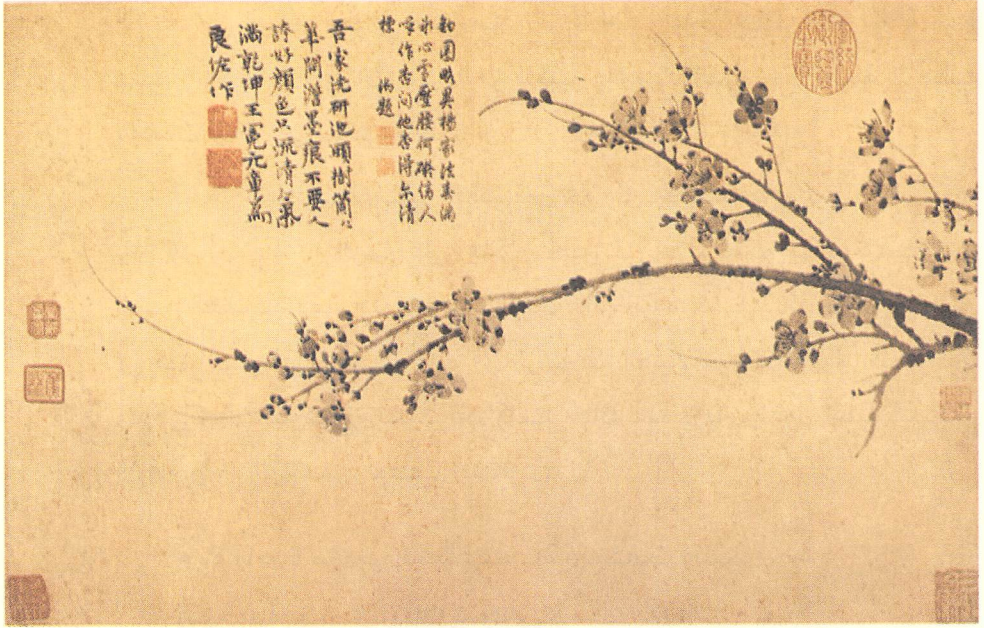 鈎圈略異楊家法春滿
氷心雪壓腰何礙傖人
呼作杏問他杏得尔清
標 御題
吾家洗研池頭樹箇箇
華開澹墨痕不要人
誇好顏色只流清氣
滿乾坤王冕元章為
良佐作